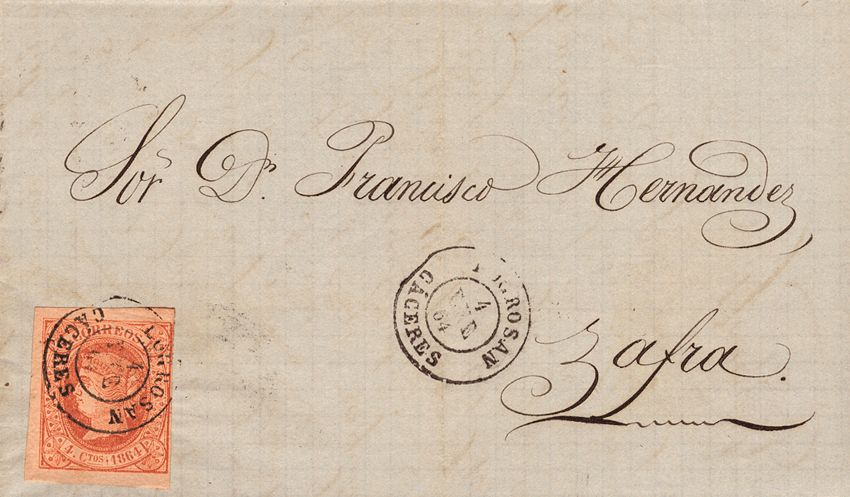 Sor. Dn. Francisco Hernandez
LOGROSAN
4
ENE
64
CACERES
Zafra.
CORREOS
4. CTOS. 1864
LOGROSAN
4
CACERES